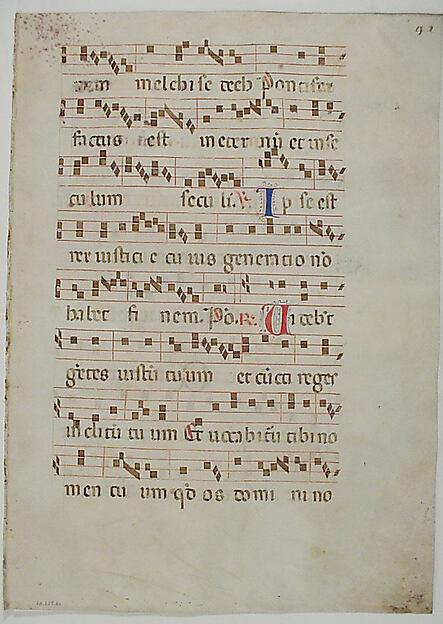 melchisedech Pontifex
factus est in eternū et in se
culum seculi. V. Ipse est
rex iusticie cuius generatio nō
habet finem. Po. R. Videbūt
gētes iustū tuum et cūcti reges
inclitū tuum Et uocabitur tibi no
men nouum qd os domini no